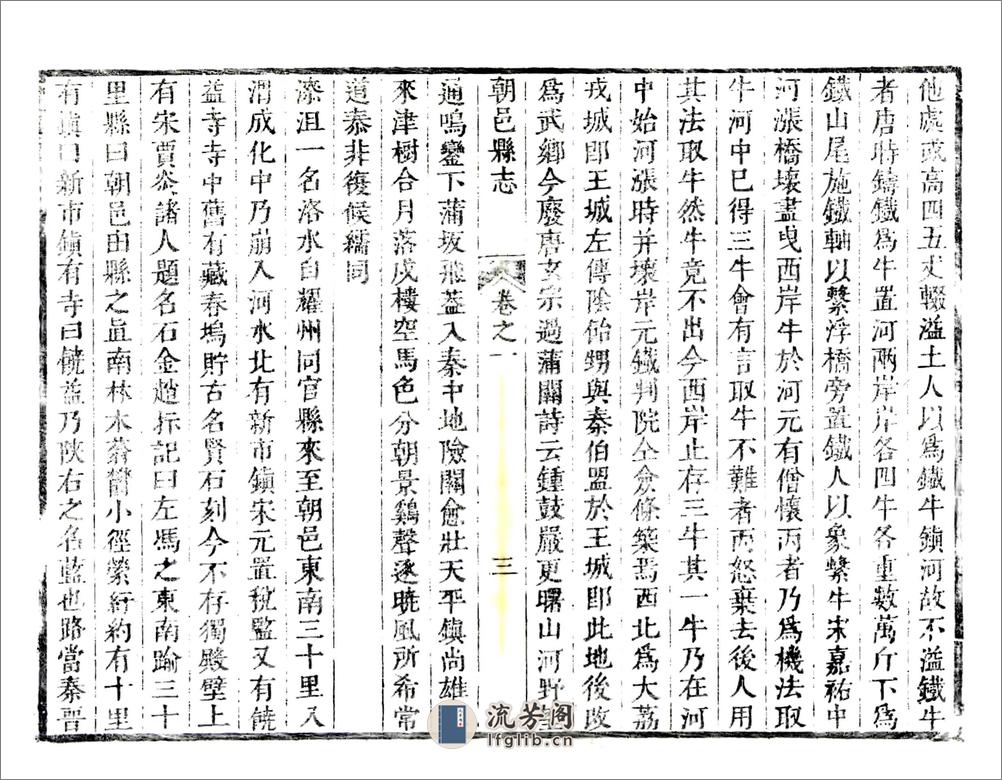 他處或高四五丈輟溢土人以爲鐵牛鎮河故不溢鐵牛
者唐時鑄鐵爲牛置河兩岸岸各四牛各重數萬斤下爲
鐵山尾施鐵軸以繫浮橋旁置鐵人以象繫牛宋嘉祐中
河漲橋壞盡曳西岸牛於河元有僧懷丙者乃爲機法取
牛河中巳得三牛會有言取牛不難者丙怒棄去後人用
其法取牛然牛竟不出今西岸止存三牛其一牛乃在河
中始河漲時并壞岸元鐵判院仝僉條築焉西北爲大荔
戎城即王城左傳陰飴甥與秦伯盟於王城即此地後改
爲武鄉今廢唐玄宗過蒲關詩云鍾鼓嚴更曙山河野望
朝邑縣志
卷之一
三
通鳴鑾下蒲坂飛葢入秦中地險關愈壯天平鎮尚雄
來津樹合月落戍樓空馬色分朝景鷄聲逐曉風所希常
道泰非復候繻同
漆沮一名洛水自耀州同官縣來至朝邑東南三十里入
渭成化中乃崩入河水北有新市鎮宋元置稅監又有饒
益寺寺中舊有藏春塢貯古名賢石刻今不存獨殿壁上
有宋賈炎諸人題名石金趙抃記曰左馮之東南踰三十
里縣曰朝邑由縣之直南林木蓊鬱小徑縈紆約有十里
有鎮曰新市鎮有寺曰饒益乃陝右之名藍也路當秦晉
流芳阁
lfglib.cn